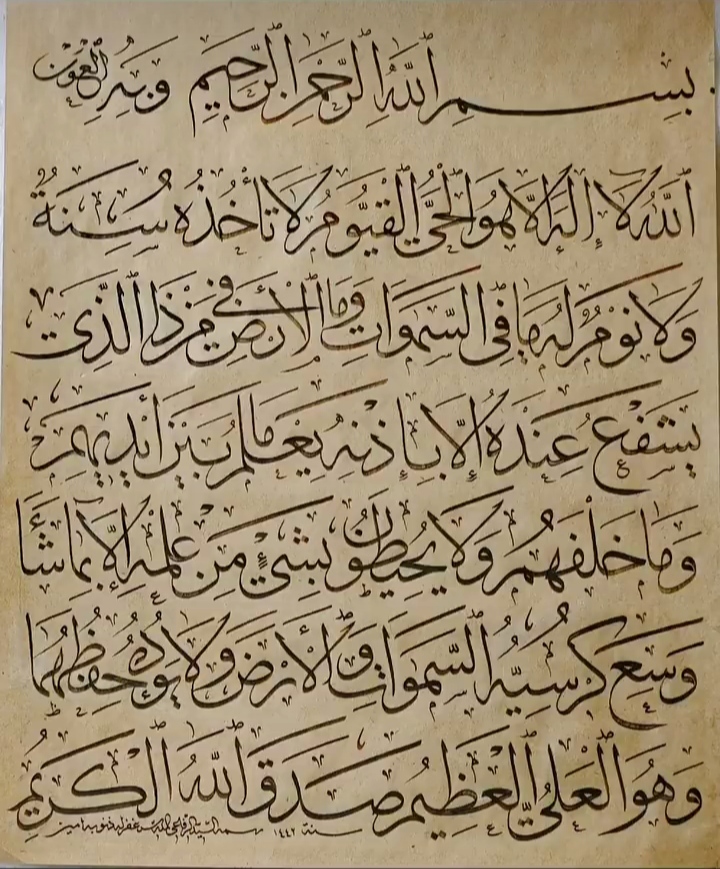 بسم الله الرحمن الرحيم وبه العون
الله لا إله إلا هو الحي القيوم لا تأخذه سنة
ولا نوم له ما في السموات وما في الأرض من ذا الذي
يشفع عنده إلا بإذنه يعلم ما بين أيديهم
وما خلفهم ولا يحيطون بشيء من علمه إلا بما شاء
وسع كرسيه السموات والأرض ولا يؤده حفظهما
وهو العلي العظيم صدق الله الكريم
سنة ١٤٤٢